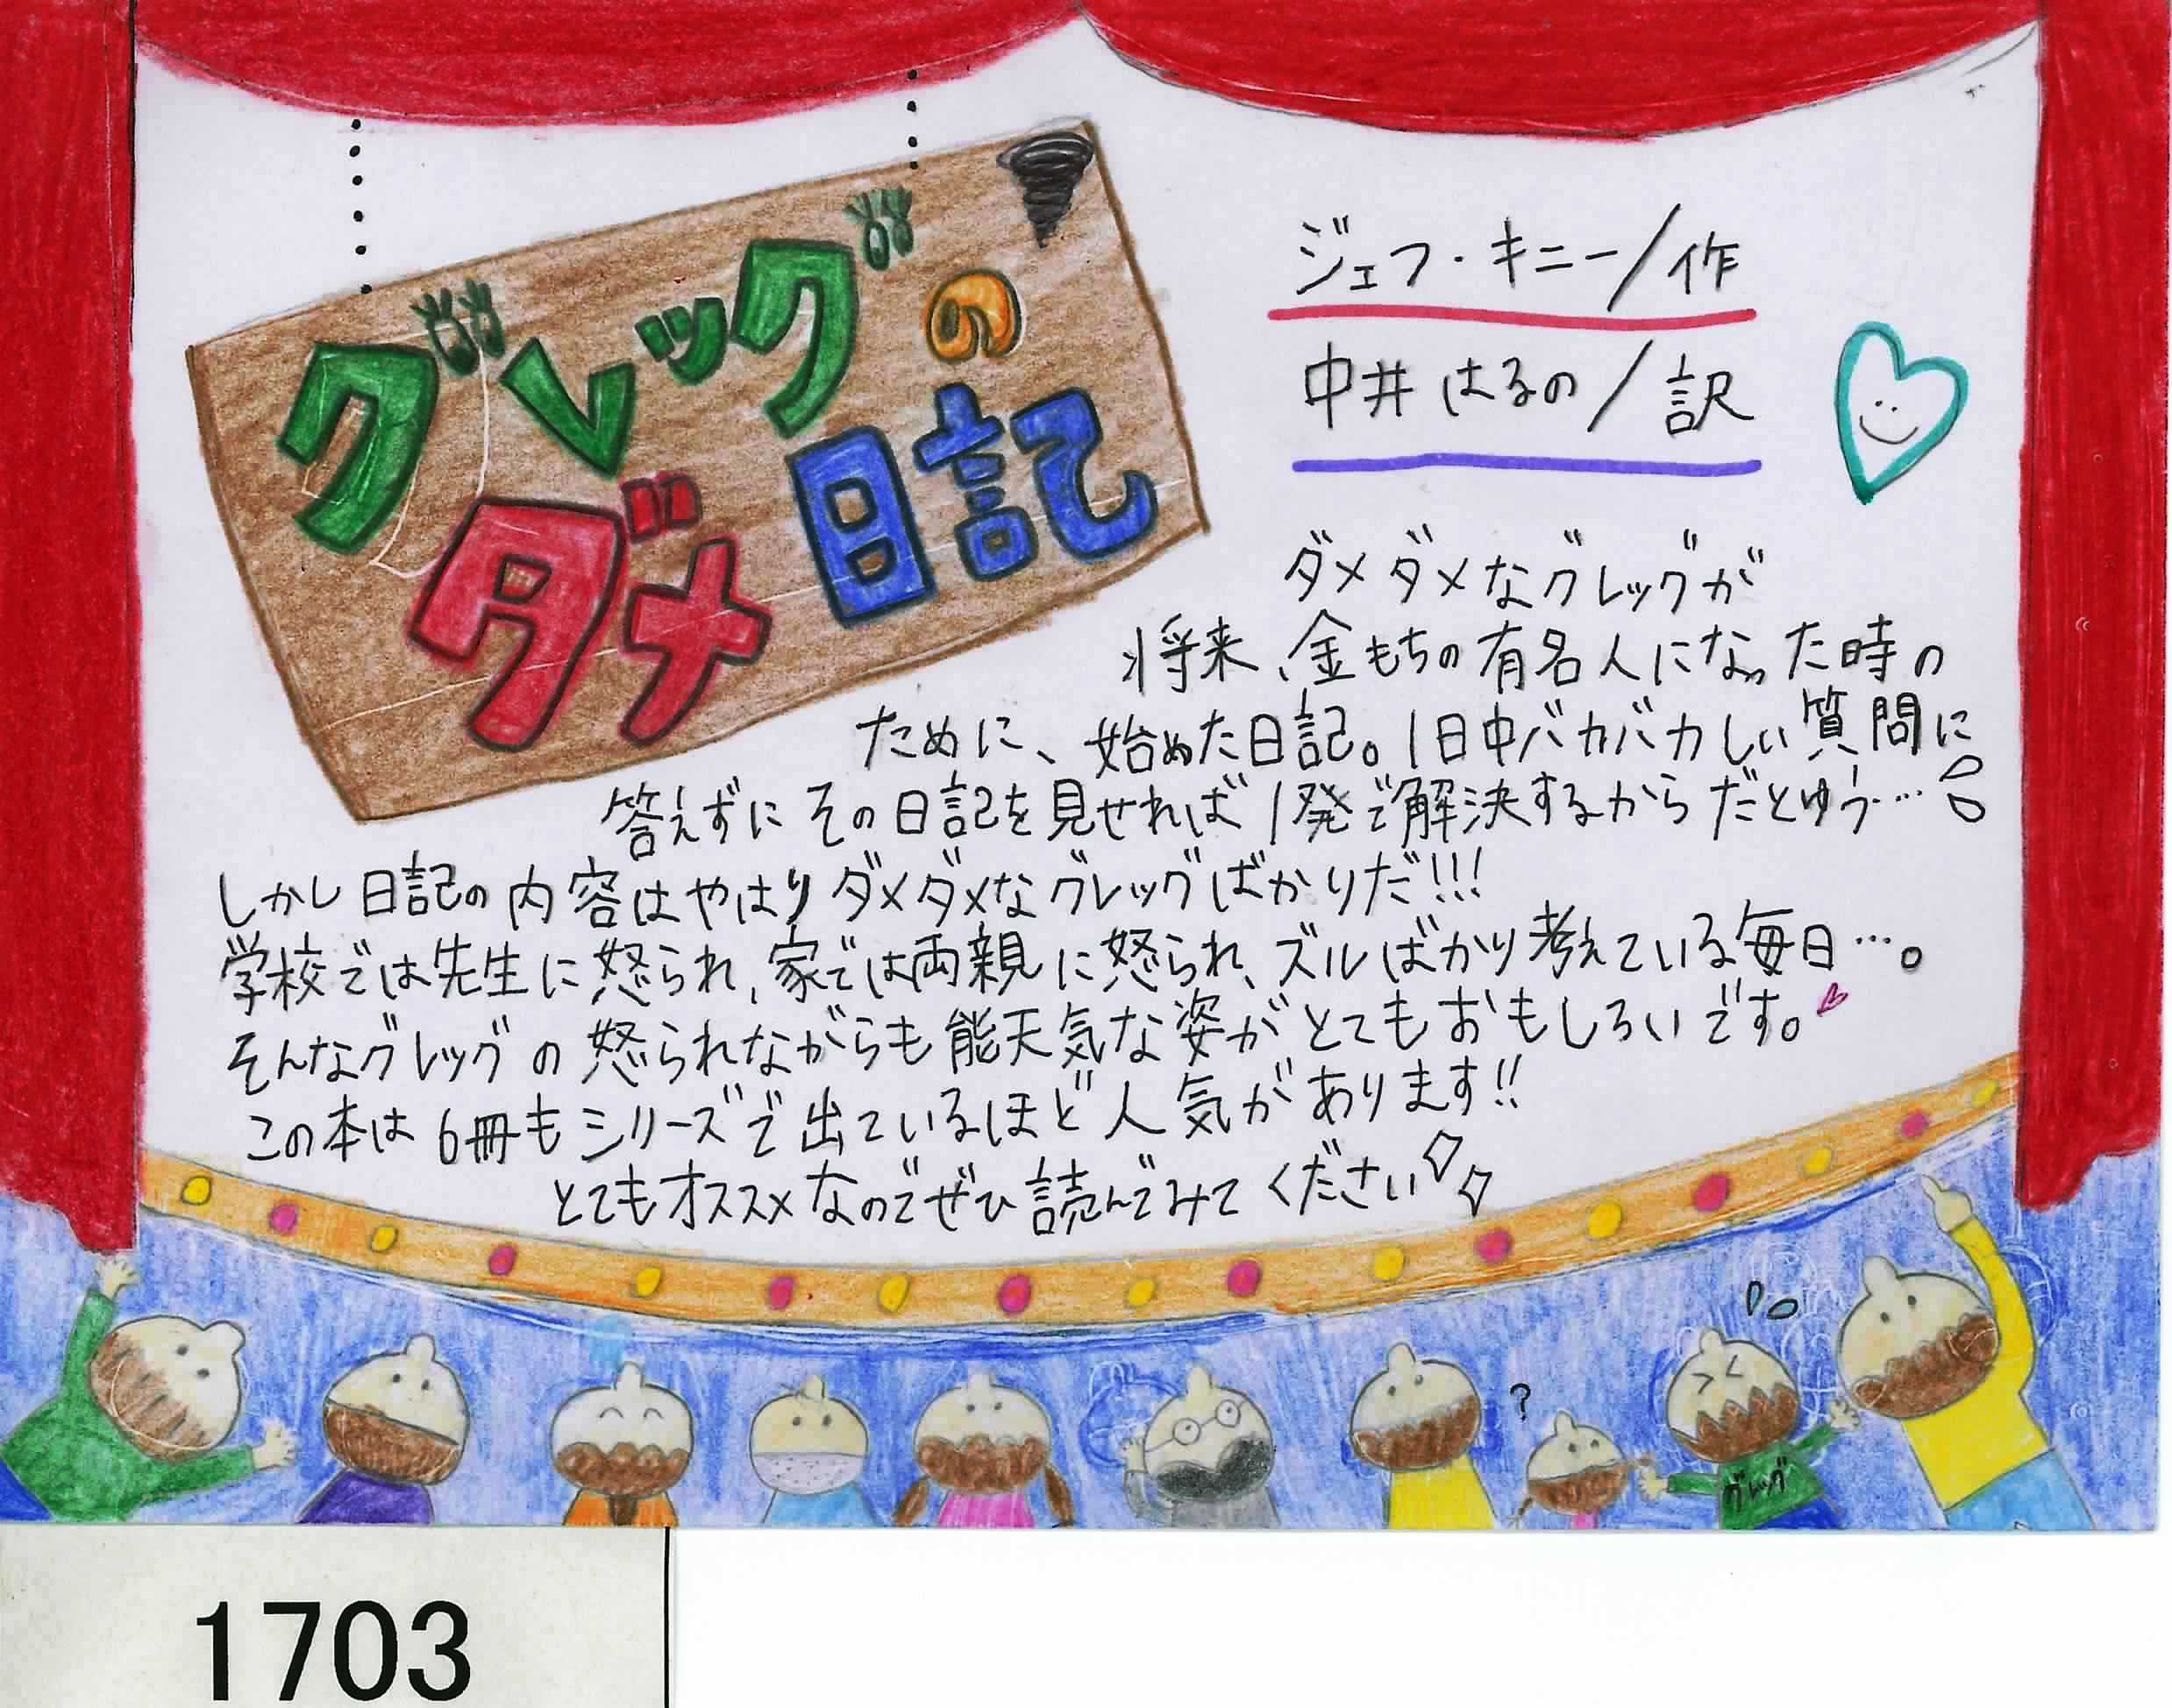 グレッグの
ダメ日記
ジェフ・キニー/作
中井はるの/訳
ダメダメなグレッグが
将来、金もちの有名人になった時の
ために、始めた日記。1日中バカバカしい質問に
答えずにその日記を見せれば1発で解決するからだとゆう…
しかし日記の内容はやはりダメダメなグレッグばかりだ!!!
学校では先生に怒られ、家では両親に怒られ、ズルばかり考えている毎日…。
そんなグレッグの怒られながらも能天気な姿がとてもおもしろいです。
この本は6冊もシリーズで出ているほど人気があります!!
とてもオススメなのでぜひ読んでみてください
?
グレッグ
1703